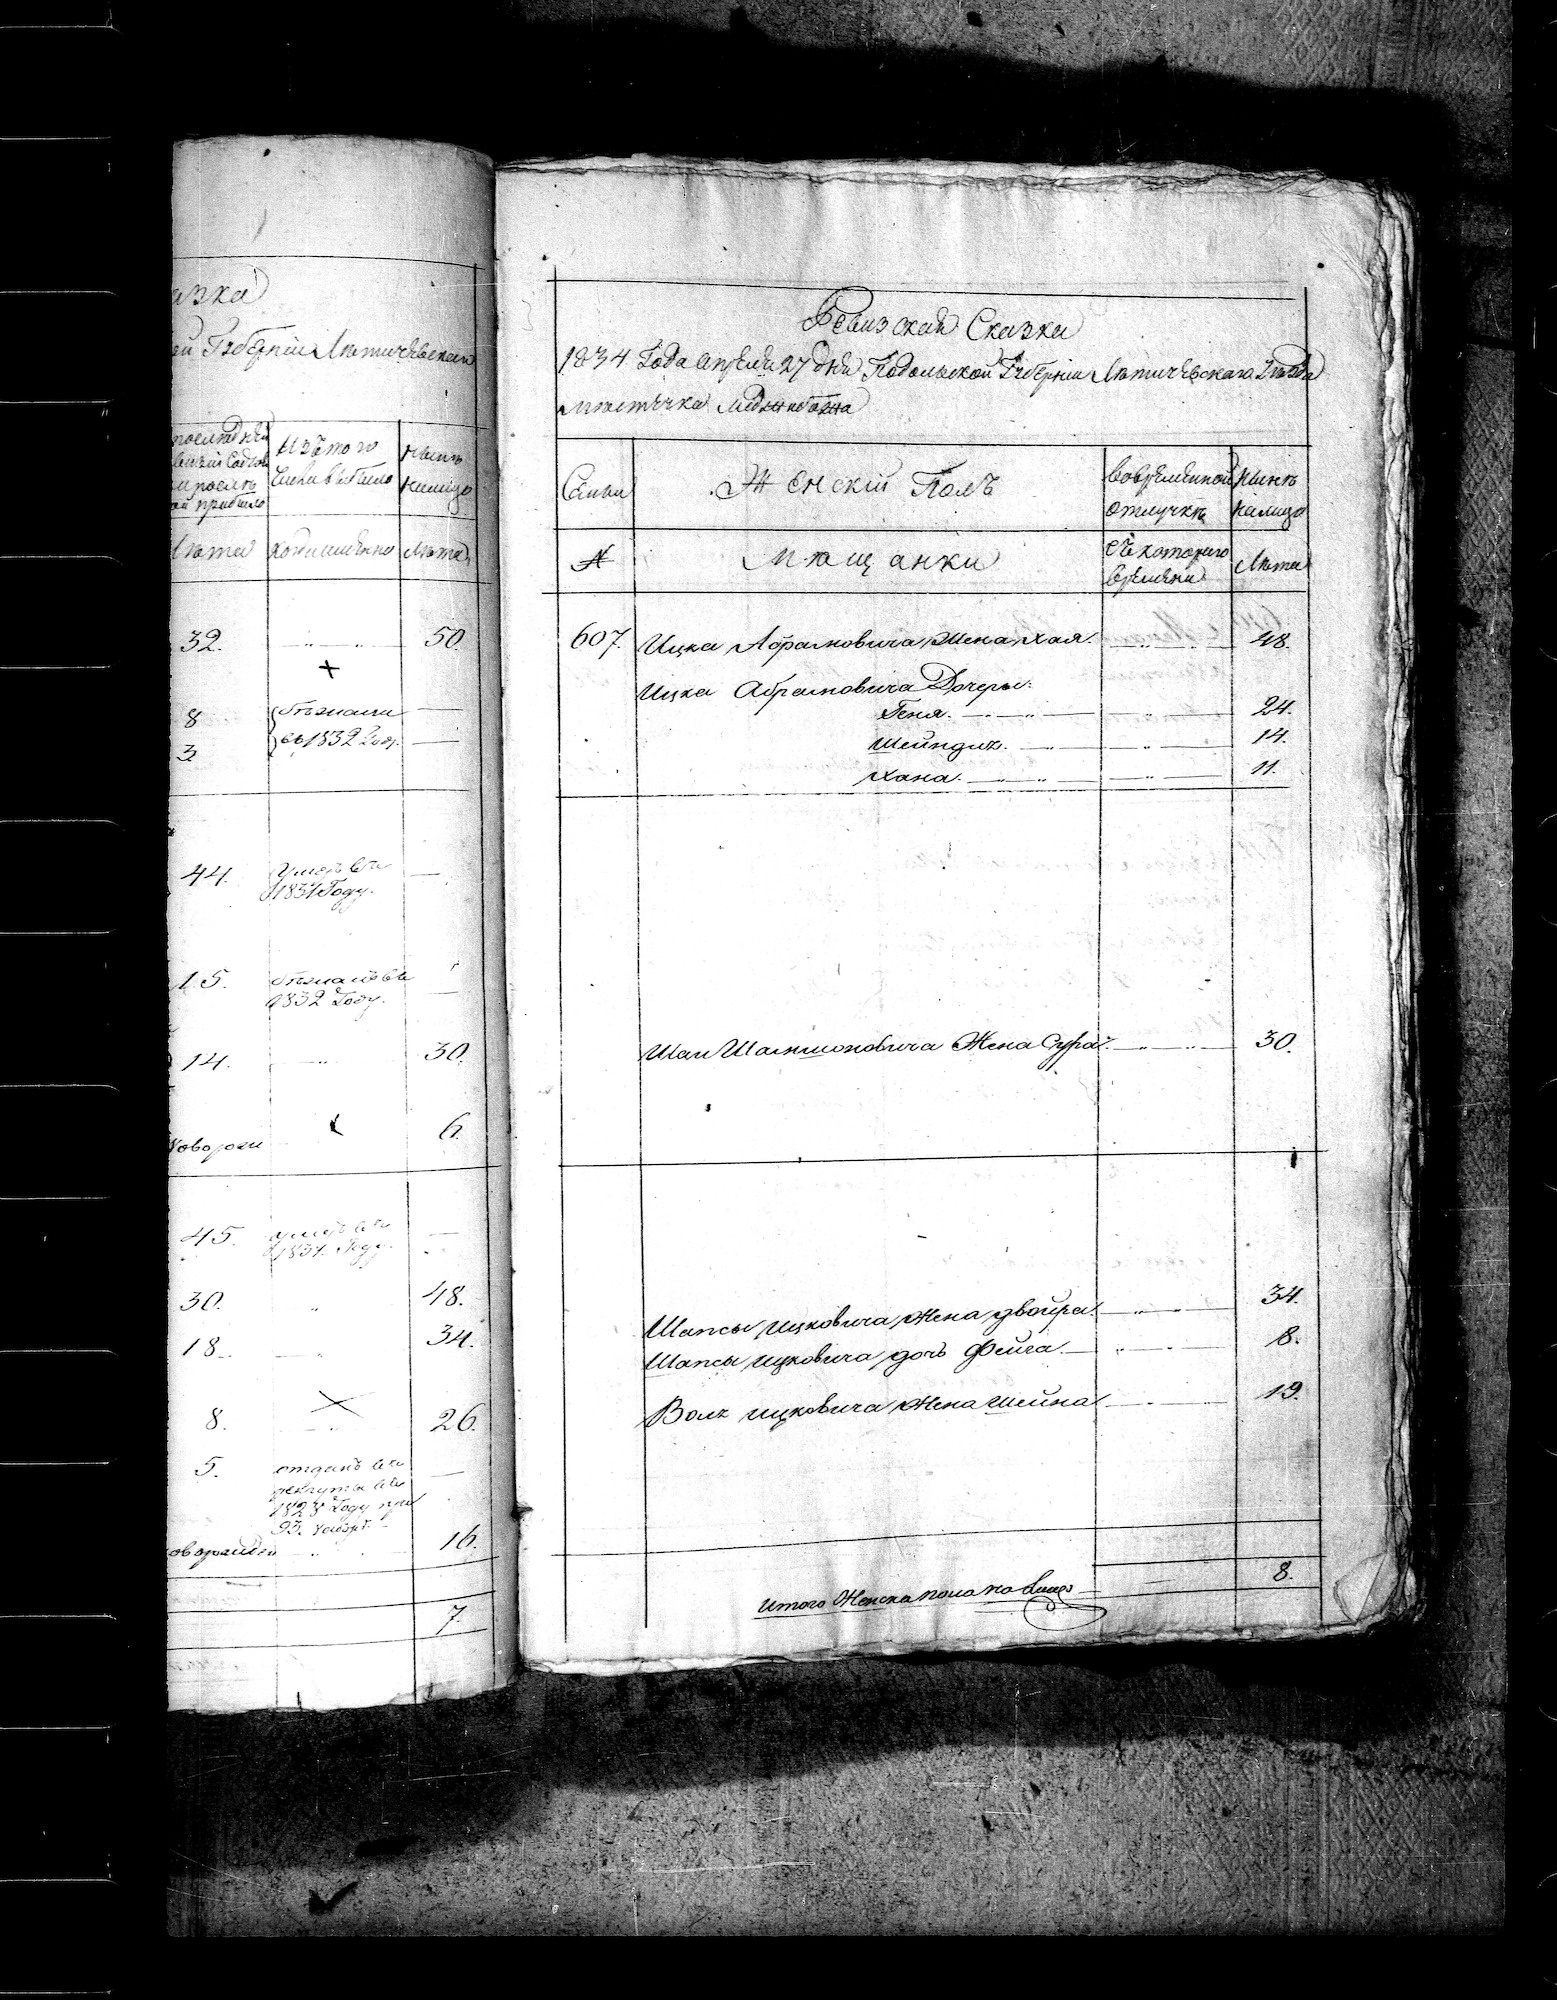 азка
ой Губерніи Летичевскаго
последней
ревизіи состо
и после
ой прибыло
Изъ того
числа выбыло
ныне
налицо
Лета
когда именно
Лета
32. 50.
8 бежали
3 въ 1832 Году.
44. умеръ въ
1831 Году.
15. бежалъ въ
1832 Году.
14. 30.
новорож 6.
45. умеръ въ
1831. Году.
30. 48.
18. 34.
8. 26.
5. отданъ въ
рекруты въ
1828 Году при
93. набор.
оворожден 16.
7.
Ревизская Сказка
1834 Года Апреля 27 дня Подольской Губерніи Летичевскаго Уезда
местечка Меджибожа
Семьи
Женскій Полъ
Вовременной
отлучке
Ныне
налицо
№
Мещанки
Съ котораго
времени
Лета
607. Ицка Абрамовича Жена Хая. 48.
Ицка Абрамовича Дочеры:
Геня. 24.
Шейндля. 14.
Хана. 11.
Шаи Шамшоновича Жена Сура. 30.
Шапсы Ицковича Жена Двойра. 34.
Шапсы Ицковича дочь Фейга. 8.
Воля Ицковича Жена Шейна. 19.
Итого Женска пола на лицо 8.